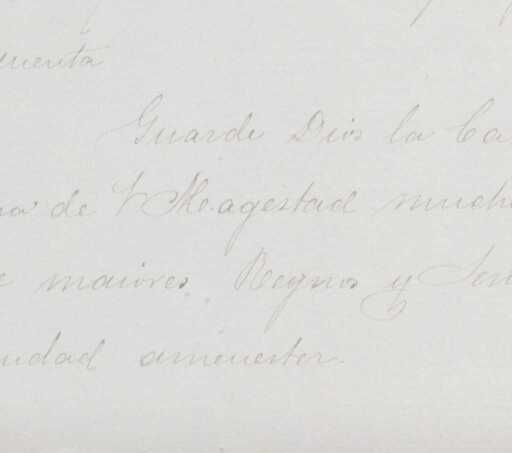 cuenta
Guarde Dios la Ca
na de V Magestad mucho
e maiores. Regnos y Sen
iudad amenester.